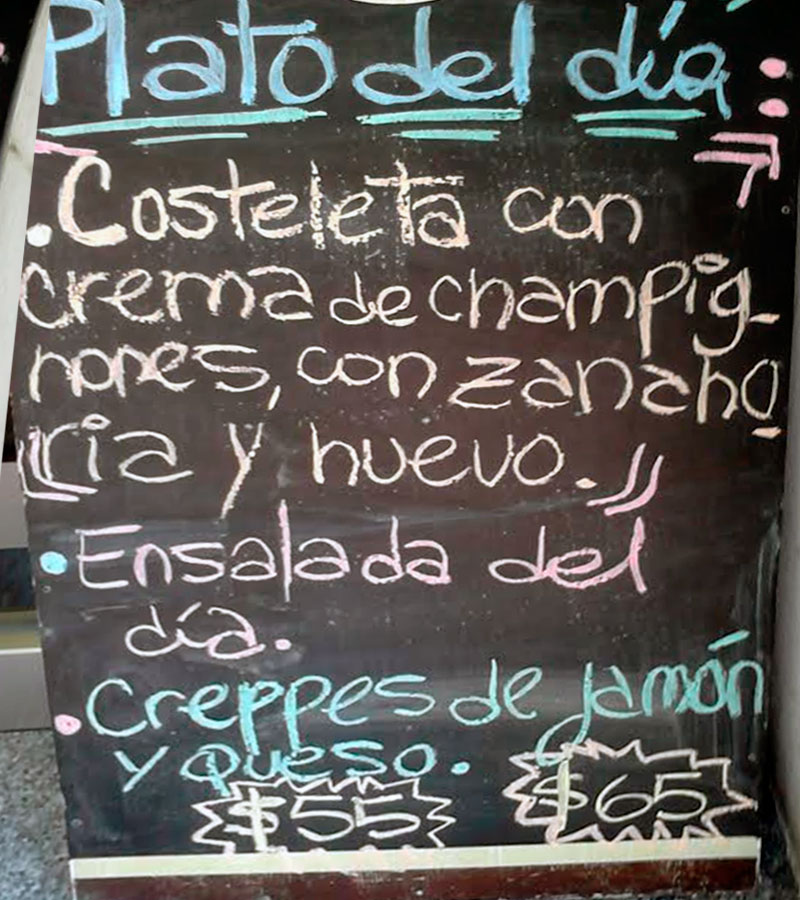 Plato del día:
.Costeleta con
crema de champig-
nones, con zanaho
ria y huevo.
• Ensalada del
día.
• Creppes de jamón
y queso.
$55 $65